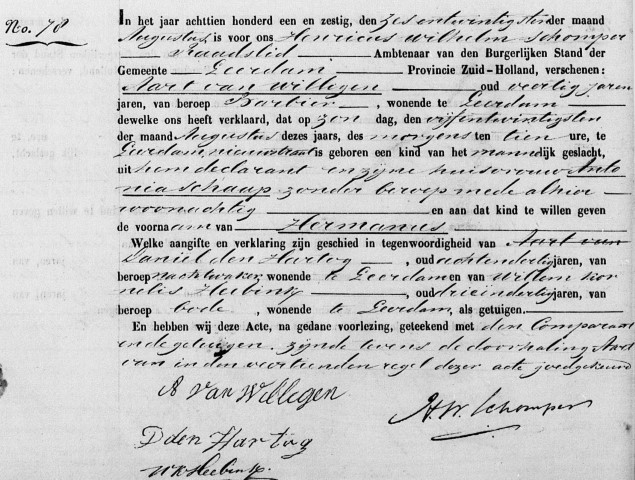 No. 78
In het jaar achttien honderd een en zestig, den zesentwintigsten der maand
Augustus, is voor ons, Henricus Wilhelm Schomper
Raadslid Ambtenaar van den Burgerlijken Stand der
Gemeente Leerdam Provincie Zuid-Holland, verschenen:
Aart van Willegen oud veertig jaren
jaren, van beroep Barbier, wonende te Leerdam
dewelke ons heeft verklaard, dat op Zon dag, den vijfentwintigsten
der maand Augustus dezes jaars, des morgens ten tien ure, te
Leerdam, nieuwstraat is geboren een kind van het mannelijk geslacht,
uit hem declarant en zijne huisvrouw Anto
nia Schaap zonder beroep mede alhier
woonachtig en aan dat kind te willen geven
de voornaam van Hermanus
Welke aangifte en verklaring zijn geschied in tegenwoordigheid van Aart van
Daniel den Hartog, oud achtendertig jaren, van
beroep nachtwaker, wonende te Leerdam en van Willem Kor
nelis Heebink, oud drieëndertig jaren, van
beroep bode, wonende te Leerdam, als getuigen.
En hebben wij deze Acte, na gedane voorlezing, geteekend met den Comparant
en de getuigen. zijnde tevens de doorhaling Aart
van in den veertienden regel dezer acte goedgekeurd
A van Willegen
H. W. Schomper
D den Hartog
W K Heebink.